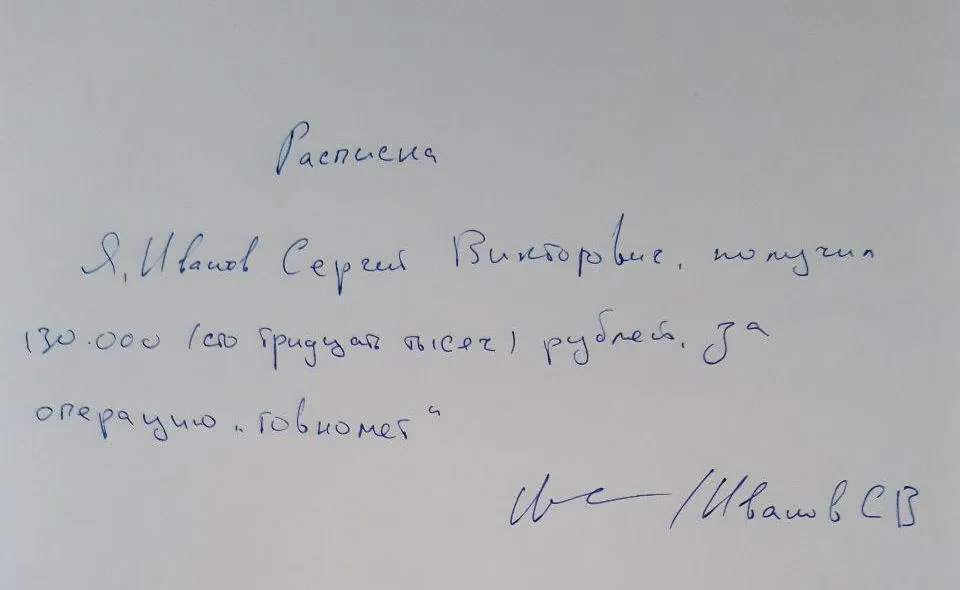 Расписка
Я, Иванов Сергей Викторович, получил
130.000 (сто тридцать тысяч) рублей, за
операцию „говномет“
/Иванов СВ